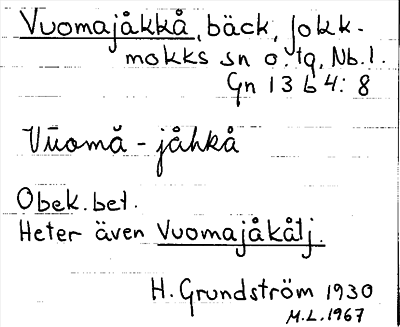 Vuomajåkkå, bäck, Jokk-
mokks sn o. tg, Nb. l.
Gn 13 b 4: 8
Vūomă - jåhkå
Obek. bet.
Heter även Vuomajåkåtj.
H. Grundström 1930
M.L. 1967